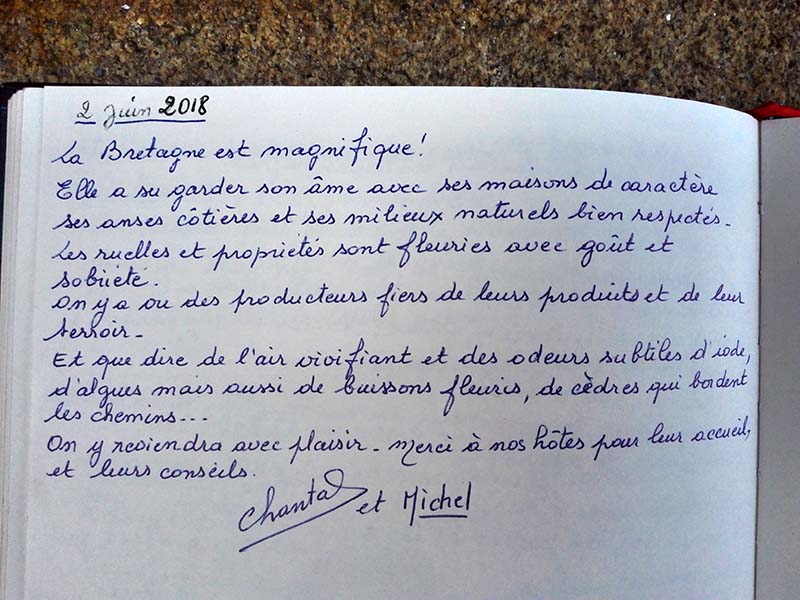 2 Juin 2018
La Bretagne est magnifique!
Elle a su garder son âme avec ses maisons de caractère
ses anses côtières et ses milieux naturels bien respectés.
Les ruelles et propriétés sont fleuries avec goût et
sobriété.
On y a vu des producteurs fiers de leurs produits et de leur
terroir.
Et que dire de l'air vivifiant et des odeurs subtiles d'iode,
d'algues mais aussi de buissons fleuris, de cèdres qui bordent
les chemins...
On y reviendra avec plaisir. Merci à nos hôtes pour leur accueil,
et leurs conseils.
Chantal et Michel